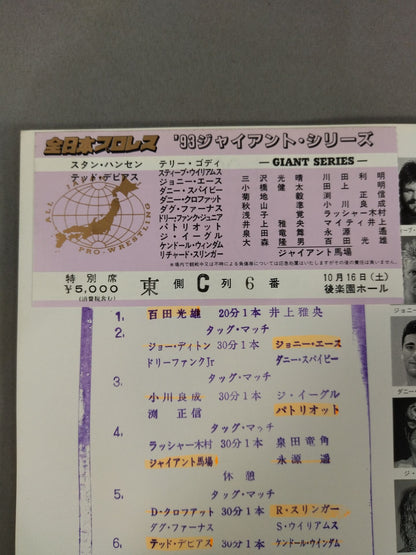 全日本プロレス
'93ジャイアント・シリーズ
スタン・ハンセン
テッド・デビアス
ALL JAPAN PRO-WRESTLING
テリー・ゴディ
スティーブ・ウイリアムス
ジョニー・エース
ダニー・スパイビー
ダニー・クロファット
ダグ・ファーナス
ドリー・ファンク・ジュニア
パトリオット
ジ・イーグル
ケンドール・ウィンダム
リチャード・スリンガー
— GIANT SERIES —
三沢光晴 川田利明
小橋健太 田上明
菊地毅 渕正信
秋山準 小川良成
浅子覚 ラッシャー木村
井上雅央 マイティ井上
泉田竜舞 永源遥
大森隆男 百田光雄
ジャイアント馬場
特別席
¥5,000
(消費税含む)
東側C列6番
10月16日(土)
後楽園ホール
1. 百田光雄 20分1本 井上雅央
2. タッグ・マッチ
ジョー・ディトン 30分1本 ジョニー・エース
ドリーファンクJr ダニー・スパイビー
3. タッグ・マッチ
小川良成 30分1本 ジ・イーグル
渕正信 パトリオット
4. タッグ・マッチ
ラッシャー木村 30分1本 泉田竜角
ジャイアント馬場 永源遥
休憩
5. タッグ・マッチ
D・クロファット 30分1本 R・スリンガー
ダグ・ファーナス S・ウイリアムス
6. テッド・デビアス 30分1本 ケンドール・ウインダム